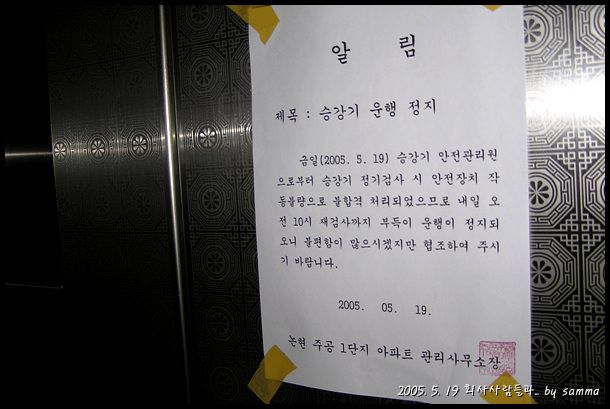 알 림
제목 : 승강기 운행 정지
금일(2005. 5. 19) 승강기 안전관리원
으로부터 승강기 정기검사 시 안전장치 작
동불량으로 불합격 처리되었으므로 내일 오
전 10시 재검사까지 부득이 운행이 정지되
오니 불편함이 많으시겠지만 협조하여 주시
기 바랍니다.
2005. 05. 19.
논현 주공 1단지 아파트 관리사무소장
2005. 5. 19 회사사람들과.. by samma